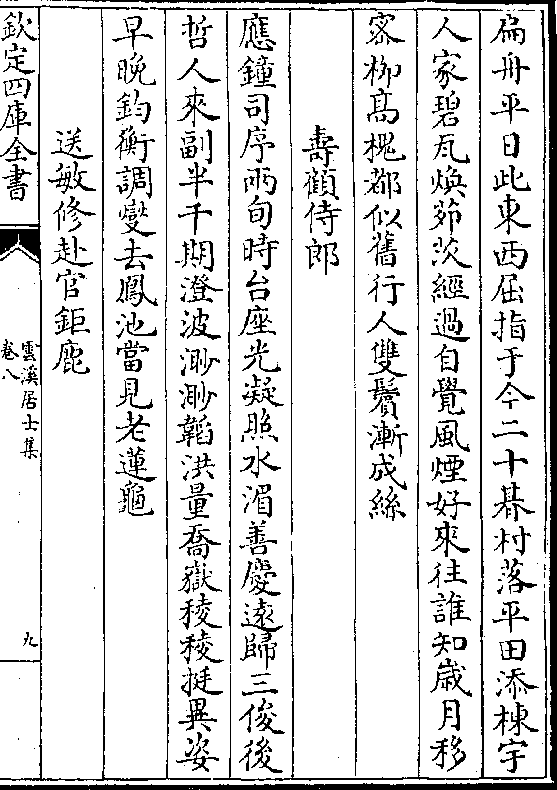 扁舟平日此東西屈指于今二十朞村落平田添棟宇
人家碧瓦煥茆茨經過自覺風煙好來往誰知歳月移
宻栁髙槐都似舊行人雙鬢漸成絲
夀顧侍郎
應鐘司序兩旬時台座光凝照水湄善慶逺歸三俊後
哲人來副半千期澄波渺渺韜洪量喬嶽稜稜挺異姿
早晩鈞衡調燮去鳳池當見老蓮龜
送敏修赴官鉅鹿
欽定四庫全書
雲溪居士集
卷八
九